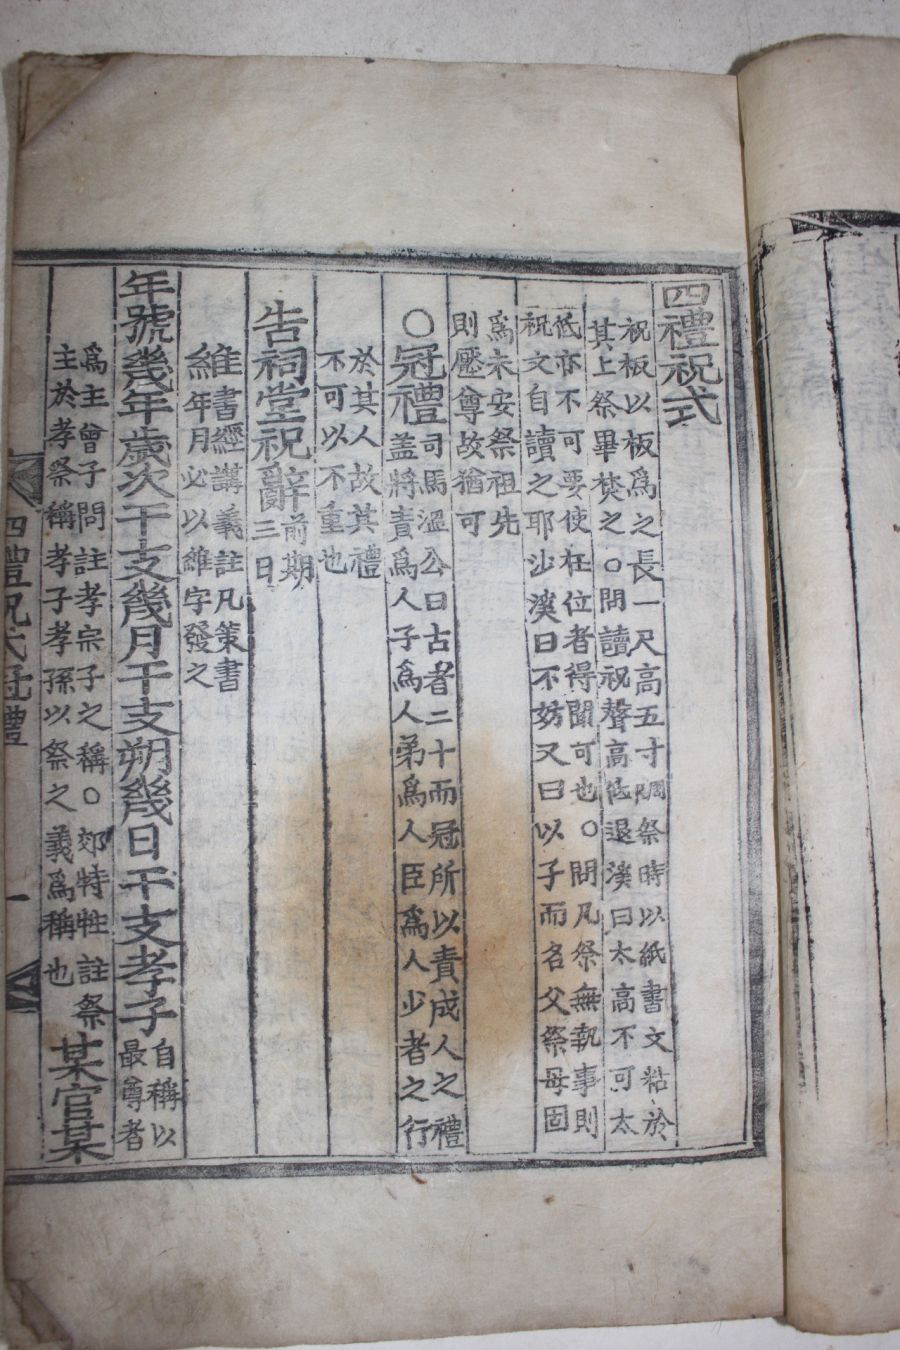 四禮祝式
祝板以板爲之長一尺高五寸祭時以紙書文粘於
其上祭畢焚之○問讀祝聲高低退溪曰太高不可太
低亦不可要使在位者得聞可也○問凡祭無執事則
祝文自讀之耶沙溪曰不妨又曰以子而名父祭母固
爲未安祭祖先
則壓尊故猶可
○冠禮
司馬溫公曰古者二十而冠所以責成人之禮
盖將責爲人子爲人弟爲人臣爲人少者之行
於其人故其禮
不可以不重也
告祠堂祝辭
前期
三日
維
書經講義註凡策書
年月必以維字發之
年號幾年歲次干支幾月干支朔幾日干支孝子
自稱以
最尊者
爲主曾子問註孝宗子之稱○郊特牲註祭
主於孝祭稱孝子孝孫以祭之義爲稱也
某官某
四禮祝式冠禮
一